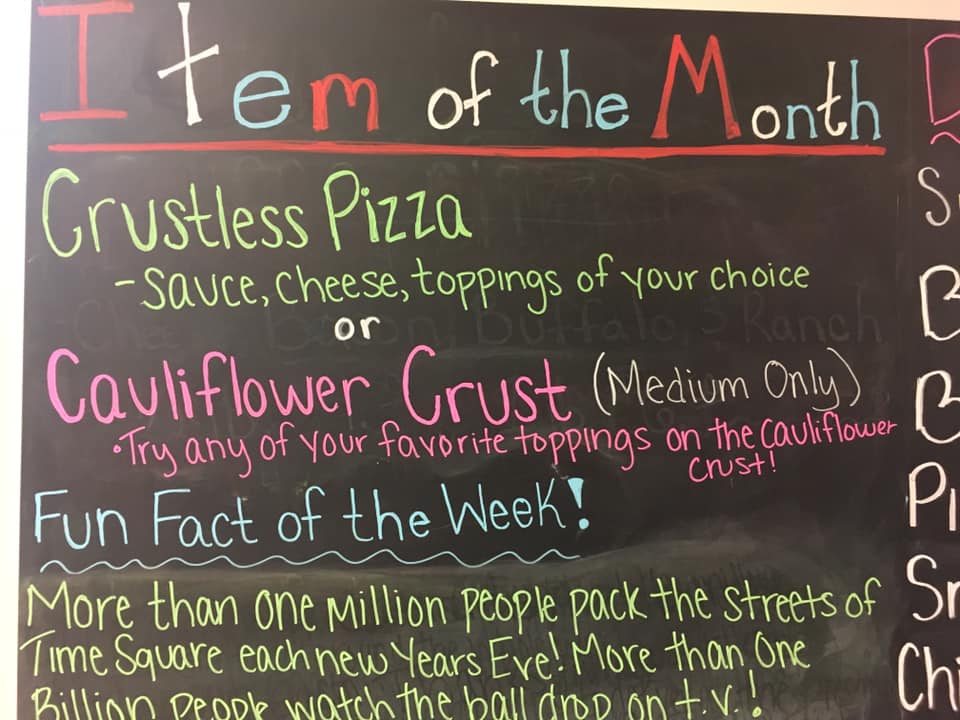 Item of the Month
Crustless Pizza
- Sauce, Cheese, toppings of your choice
or
Cauliflower Crust (Medium Only)
• Try any of your favorite toppings on the Cauliflower
Crust!
Fun Fact of the Week!
More than one Million people pack the streets of
Time Square each new Years Eve! More than One
Billion people watch the ball drop on t.v.!